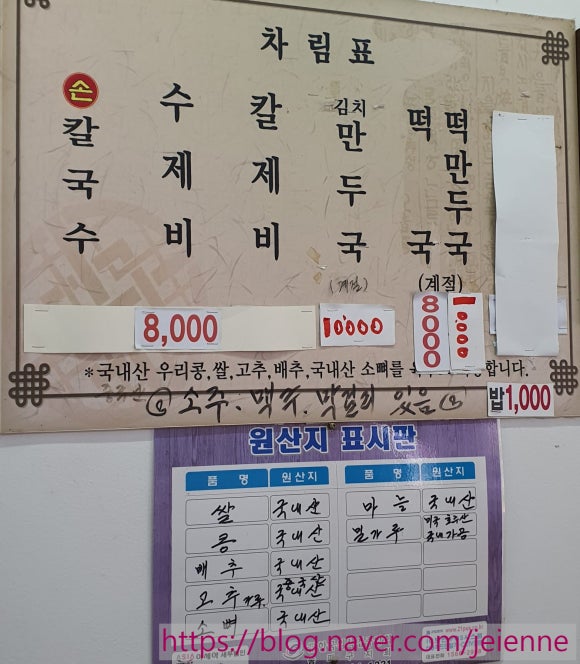 차림표
손칼국수
수제비
칼제비
김치
만두국
(계절)
떡국
떡만두국
(계절)
8,000
10,000
8000
10,000
*국내산 우리콩,쌀,고추,배추,국내산 소뼈를
합니다.
소주. 맥주. 막걸리 있음
밥1,000
원산지 표시판
품 명 원산지 품 명 원산지
쌀 국내산 마늘 국내산
콩 국내산 밀가루 미국 호주산 국내가공
배추 국내산
고추가루 국내산 중국산
소뼈 국내산
https://blog.naver.com/jeienne